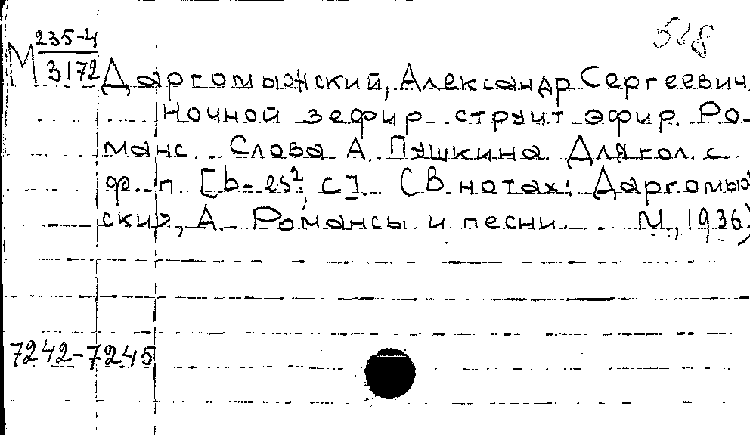 518
М 235-4
3172 Даргомыжский, Александр Сергеевич
Ночной зефир струит эфир. Ро-
манс. Слова А. Пушкина. Для гол. с
ф.-п. [b-es², c]. (В нотах: Даргомыж
ский, А. Романсы и песни. М., 1936)
7242-7245